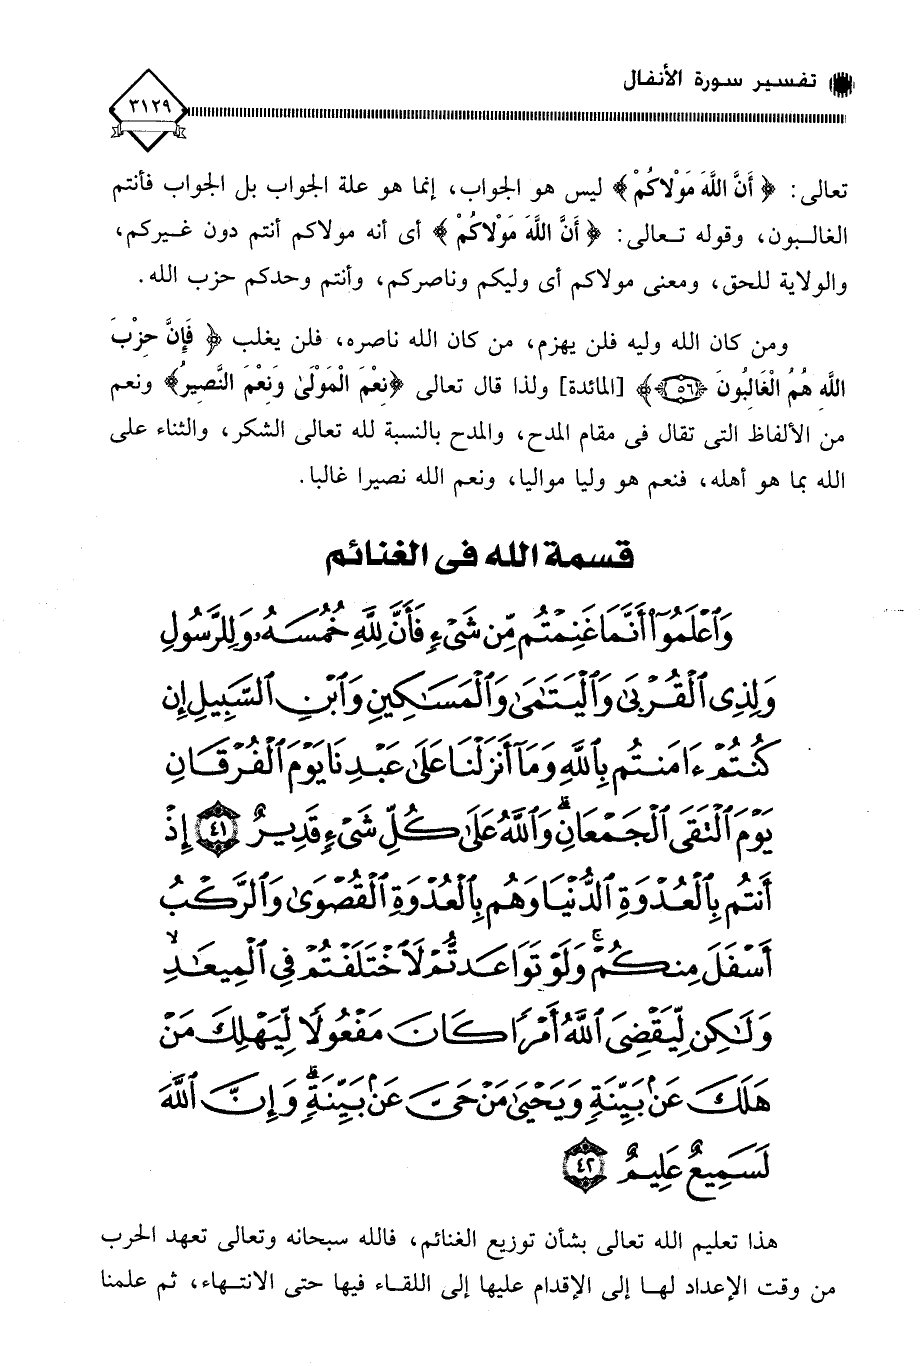 تفسير سورة الأنفال
٣١٢٩
تعالى: ﴿ أَنَّ اللَّهَ مَوْلاكُمْ ﴾ ليس هو الجواب، إنما هو علة الجواب بل الجواب فأنتم
الغالبون، وقوله تعالى: ﴿ أَنَّ اللَّهَ مَوْلاكُمْ ﴾ أى أنه مولاكم أنتم دون غيركم،
والولاية للحق، ومعنى مولاكم أى وليكم وناصركم، وأنتم وحدكم حزب الله.
ومن كان الله وليه فلن يهزم، من كان الله ناصره، فلن يغلب ﴿ فَإِنَّ حِزْبَ
اللَّهِ هُمُ الْغَالِبُونَ ﴿٥٦﴾﴾ [المائدة] ولذا قال تعالى ﴿نِعْمَ الْمَوْلَىٰ وَنِعْمَ النَّصِيرُ﴾ ونعم
من الألفاظ التى تقال فى مقام المدح، والمدح بالنسبة لله تعالى الشكر، والثناء على
الله بما هو أهله، فنعم هو وليا مواليا، ونعم الله نصيرا غالبا.
قسمة الله فى الغنائم
وَٱعْلَمُوٓا۟ أَنَّمَا غَنِمْتُم مِّن شَىْءٍ فَأَنَّ لِلَّهِ خُمُسَهُۥ وَلِلرَّسُولِ
وَلِذِى ٱلْقُرْبَىٰ وَٱلْيَتَٰمَىٰ وَٱلْمَسَٰكِينِ وَٱبْنِ ٱلسَّبِيلِ إِن
كُنتُمْ ءَامَنتُم بِٱللَّهِ وَمَآ أَنزَلْنَا عَلَىٰ عَبْدِنَا يَوْمَ ٱلْفُرْقَانِ
يَوْمَ ٱلْتَقَى ٱلْجَمْعَانِ ۗ وَٱللَّهُ عَلَىٰ كُلِّ شَىْءٍ قَدِيرٌ ﴿٤١﴾ إِذْ
أَنتُم بِٱلْعُدْوَةِ ٱلدُّنْيَا وَهُم بِٱلْعُدْوَةِ ٱلْقُصْوَىٰ وَٱلرَّكْبُ
أَسْفَلَ مِنكُمْ ۚ وَلَوْ تَوَاعَدتُّمْ لَٱخْتَلَفْتُمْ فِى ٱلْمِيعَٰدِ ۙ
وَلَٰكِن لِّيَقْضِىَ ٱللَّهُ أَمْرًا كَانَ مَفْعُولًا لِّيَهْلِكَ مَنْ
هَلَكَ عَنۢ بَيِّنَةٍ وَيَحْيَىٰ مَنْ حَىَّ عَنۢ بَيِّنَةٍ ۗ وَإِنَّ ٱللَّهَ
لَسَمِيعٌ عَلِيمٌ ﴿٤٢﴾
هذا تعليم الله تعالى بشأن توزيع الغنائم، فالله سبحانه وتعالى تعهد الحرب
من وقت الإعداد لها إلى الإقدام عليها إلى اللقاء فيها حتى الانتهاء، ثم علمنا